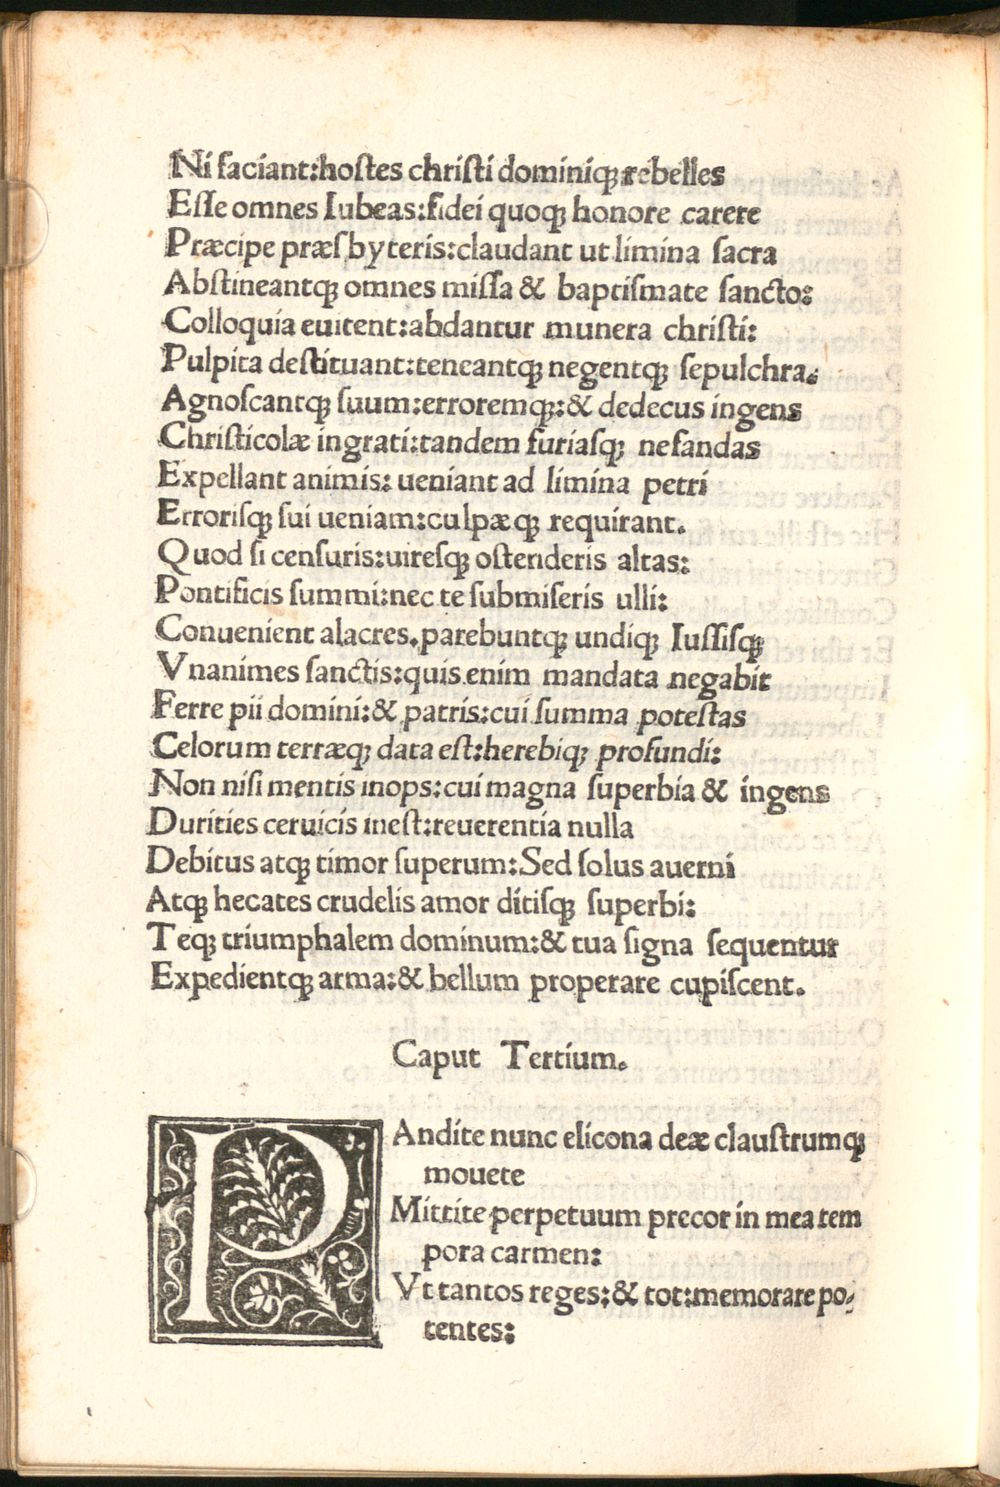 Ni faciant:hoſtes chriſti dominiqꝫ rebelles
Eſſe omnes Iubeas:fidei quoqꝫ honore carere
Præcipe præſbyteris:claudant ut limina ſacra
Abſtineantqꝫ omnes miſſa & baptiſmate ſancto:
Colloquia euitent:abdantur munera chriſti:
Pulpita deſtituant:teneantqꝫ negentqꝫ ſepulchra.
Agnoſcantqꝫ ſuum:erroremqꝫ:& dedecus ingens
Chriſticolæ ingrati:tandem furiaſqꝫ nefandas
Expellant animis: ueniant ad limina petri
Erroriſqꝫ ſui ueniam:culpæqꝫ requirant.
Quod ſi cenſuris:uireſqꝫ oſtenderis altas:
Pontificis ſummi:nec te ſubmiſeris ulli:
Conuenient alacres.parebuntqꝫ undiqꝫ Iuſſiſqꝫ
Vnanimes ſanctis:quis enim mandata negabit
Ferre pii domini:& patris:cui ſumma poteſtas
Celorum terræqꝫ data eſt:herebiqꝫ profundi:
Non niſi mentis inops:cui magna ſuperbia & ingens
Durities ceruicis ineſt:reuerentia nulla
Debitus atqꝫ timor ſuperum:Sed ſolus auerni
Atqꝫ hecates crudelis amor ditiſqꝫ ſuperbi:
Teqꝫ triumphalem dominum:& tua ſigna ſequentur
Expedientqꝫ arma:& bellum properare cupiſcent.
Caput Tertium.
PAndite nunc elicona deæ clauſtrumqꝫ
mouete
Mittite perpetuum precor in mea tem
pora carmen:
Vt tantos reges:& tot:memorare po⸗
tentes: